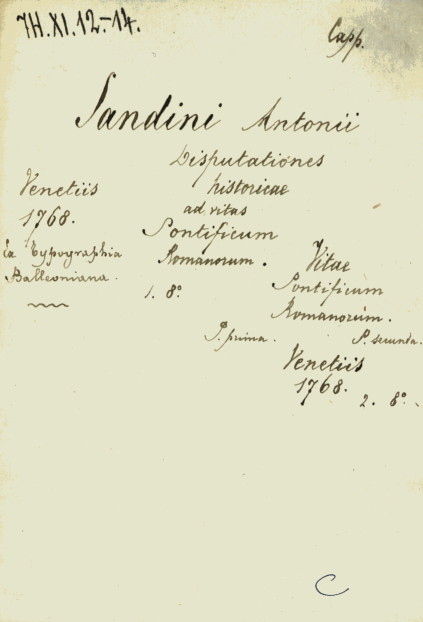 7H.XI.12-14.
Capp.
Sandini Antonii
Disputationes
historicae
ad vitas
Pontificum
Romanorum.
1. 8º
Venetiis
1768.
Ex Typographia
Balleoniana.
Vitae
Pontificum
Romanorum.
P. prima.
P. secunda.
Venetiis
1768.
2. 8º.
C